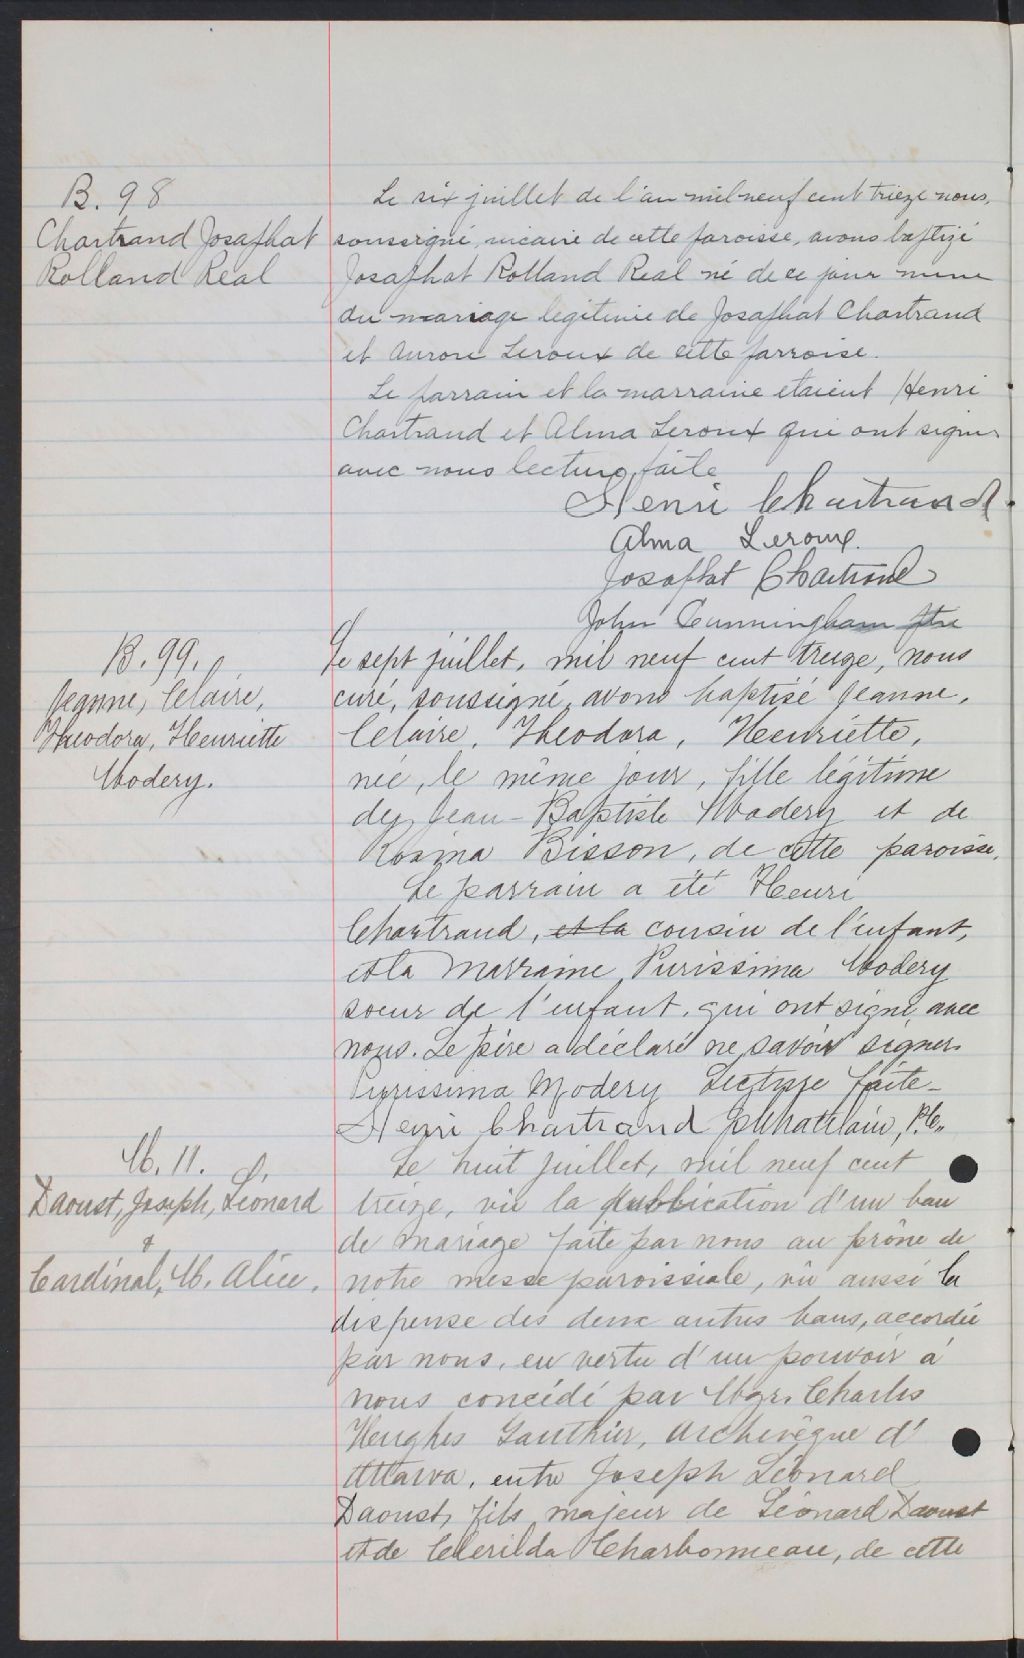 B. 98
Chartrand Josaphat
Rolland Real
Le six juillet de l'an mil neuf cent trieze nous,
soussigné, vicaire de cette paroisse, avons baptizé
Josaphat Rolland Real né de ce jour meme
du mariage legitime de Josaphat Chartrand
et Aurore Leroux de cette parroise.
Le parrain et la marraine etaient Henri
Chartrand et Alma Leroux qui ont signes
avec nous lecture faite
Henri Chartrand
Alma Leroux.
Josaphat Chartrand
John Cunningham ptre
B. 99.
Jeanne, Claire,
Theodora, Henriette
Modery.
Le sept juillet, mil neuf cent treize, nous
curé, soussigné, avons baptisé Jeanne,
Claire, Theodora, Henriette,
née, le même jour, fille légitime
de Jean-Baptiste Modery et de
Rosina Bisson, de cette paroisse.
Le parrain a été Henri
Chartrand, et la cousin de l'enfant,
et la marraine Purissima Modery
soeur de l'enfant, qui ont signé avec
nous. Le père a déclaré ne savoir signer.
Purissima Modery Lecture faite-
Henri Chartrand
M. 11.
Daoust, Joseph, Léonard
&
Cardinal, M. Alice.
Le huit juillet, mil neuf cent
treize, vu la publication d'un ban
de mariage faite par nous au prône de
notre messe paroissiale, vu aussi la
dispense des deux autres bans, accordée
par nous, en vertu d'un pouvoir à
nous concédé par Mgr. Charles
Hughes Gauthier, Archevêque d'
Ottawa, entre Joseph Léonard
Daoust, fils majeur de Léonard Daoust
et de Clerilda Charbonneau, de cette